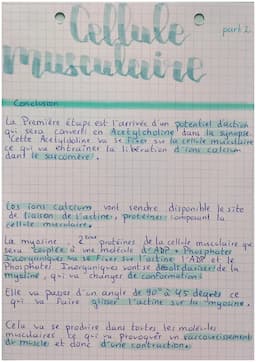 Cellule
part 2
musculaire
Conclusion
La Première étape est l'arrivée d'un potentiel d'action
qui sera converti en Acetylcholine dans la synapse.
Cette Acetylcholine va se fixer sur la cellule musculaire
ce qui va entraîner la libération d'ions calcium
dans le sarcomère.
Les ions calcium vont rendre disponible le site
de liaison de l'actine, protéines composant la
cellule musculaire.
La myosine 2ème protéines de la cellule musculaire qui
sera couplée à une molécule d'ADP + Phosphates
Inorganiques va se fixer sur l'actine l'ADP et le
Phosphates Inorganiques vont se désolidariser de la
myosine, qui va changer de conformations
Elle va passer d'un angle de 90° à 45 degrés ce
qui va faire glisser l'actine sur la myosine.
Cela va se produire dans toutes les molécules
musculaires, ce qui va provoquer un raccourcissement
du muscle et donc d'une contraction.